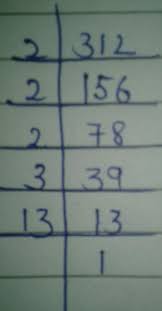 2 312
2 156
2 78
3 39
13 13
1